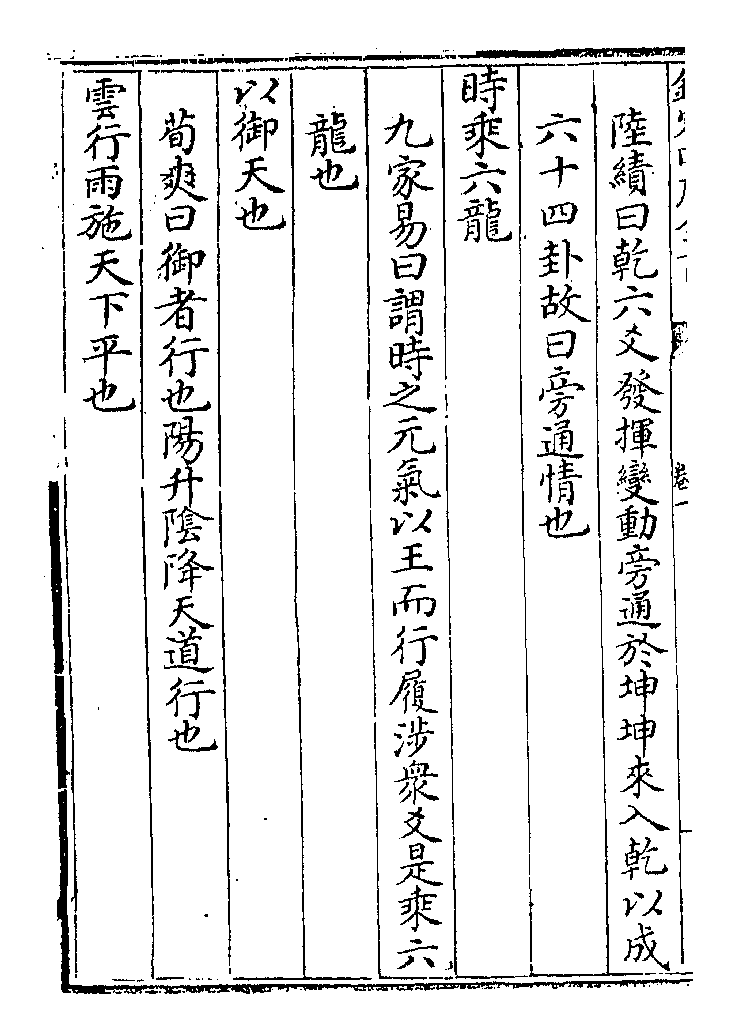 陸績曰乾六爻發揮變動旁通於坤坤來入乾以成
六十四卦故曰旁通情也
時乘六龍
九家易曰謂時之元氣以王而行履涉衆爻是乘六
龍也
以御天也
荀爽曰御者行也陽升隂降天道行也
雲行雨施天下平也
卷一